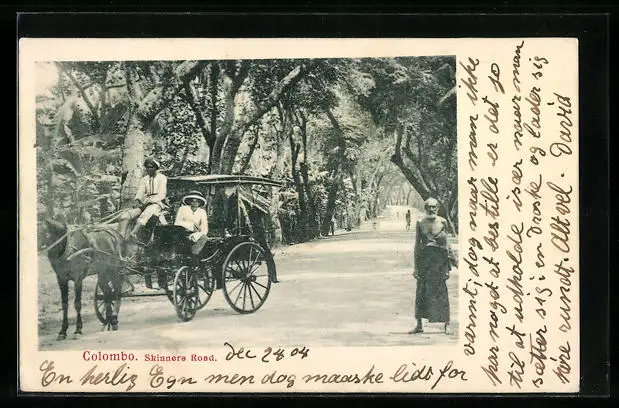 Colombo. Skinners Road.
Dec 28 04
En herlig Egn men dog maaske lidt for
varmt, dog naar man ikke
har noget at bestille er det jo
til at udholde især naar man
sætter sig i en Droske og lader sig
køre rundt. Alt vel. David